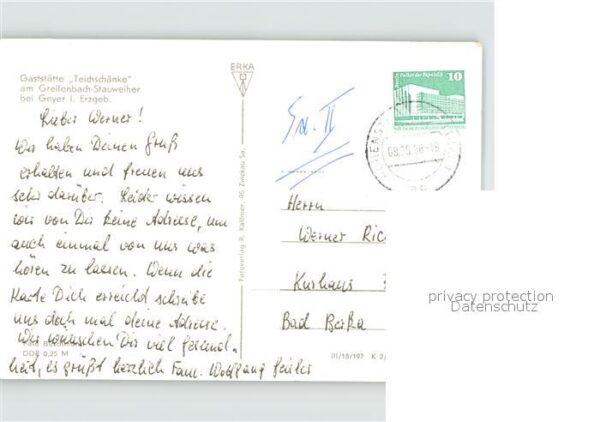 Gaststätte „Teichschänke"
am Greifenbach-Stauweiher
bei Geyer i. Erzgeb.
Lieber Werner!
Wir haben Deinen Gruß
erhalten und freuen uns
sehr darüber. Leider wissen
wir von Dir keine Adresse, um
auch einmal von uns was
hören zu lassen. Wenn die
Karte Dich erreicht schreibe
uns doch mal deine Adresse.
Wir wünschen Dir viel Gesund-
heit, es grüßt herzlich Fam. Wolfgang
DDR 0,25 M
ERKA
Fotoverlag R. Kallmer, 95 Zwickau Sa.
III/18/197 K 2/
10
Palast der Republik
Herrn
Werner Ric
Kurhaus
Bad Berka
privacy protection
Datenschutz